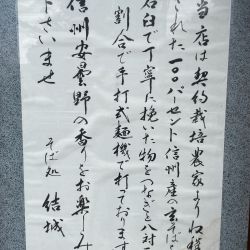 当店は契約栽培農家より収穫
された一〇〇パーセント信州産の玄そば
石臼で丁寧に挽いた物をつなぎを八対
割合で手打式麺機で打っております
信州安曇野の香りをお楽しみ
下さいませ
そば処 結城